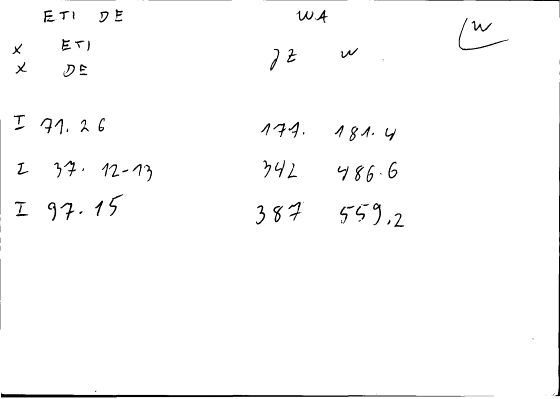 ETI DE WA W
x ETI
x DE JZ W
I 71.26 177. 181.4
I 37. 12-13 342 486.6
I 97.15 387 559.2